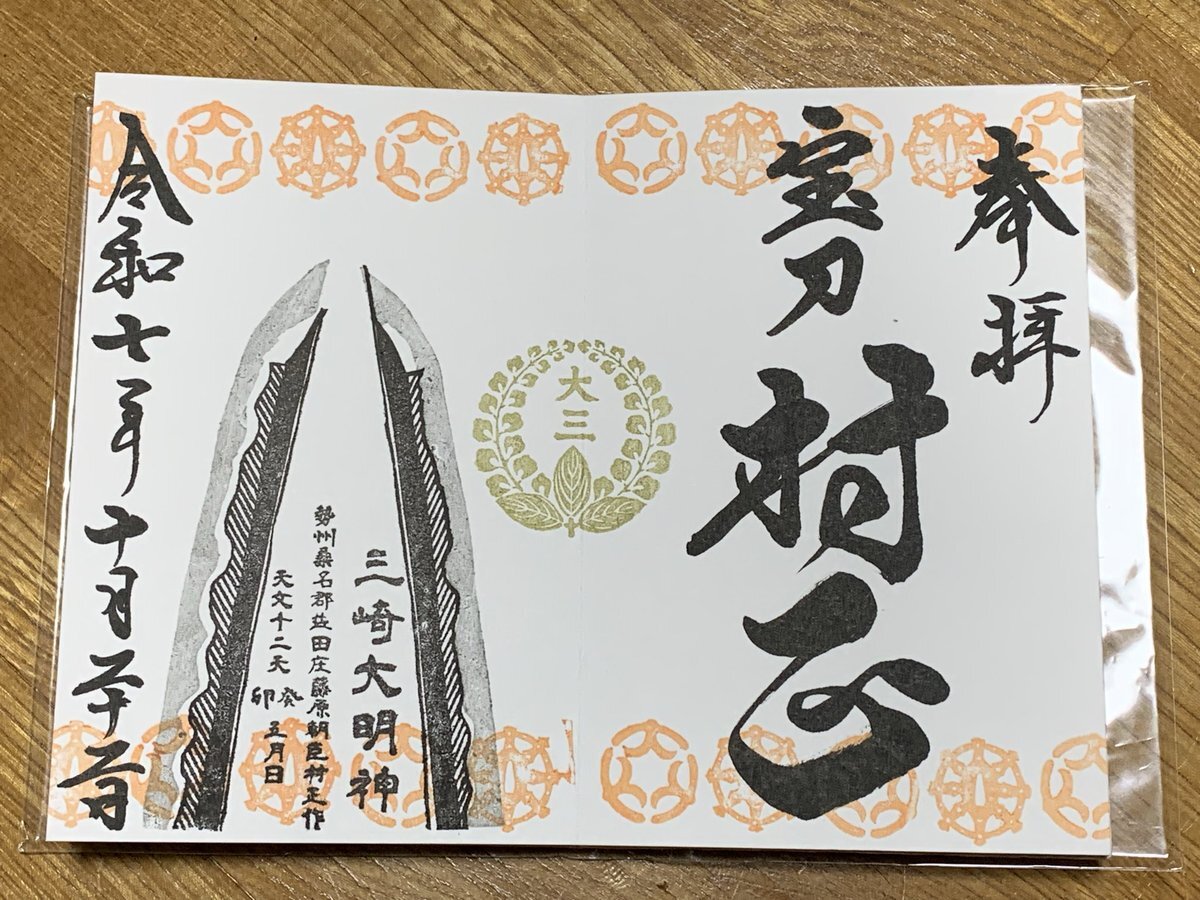 奉拝
宝刀 村正
大三
三崎大明神
勢州桑名郡益田庄藤原朝臣村正作
天文十二天癸卯五月日
令和七年十月二十二日